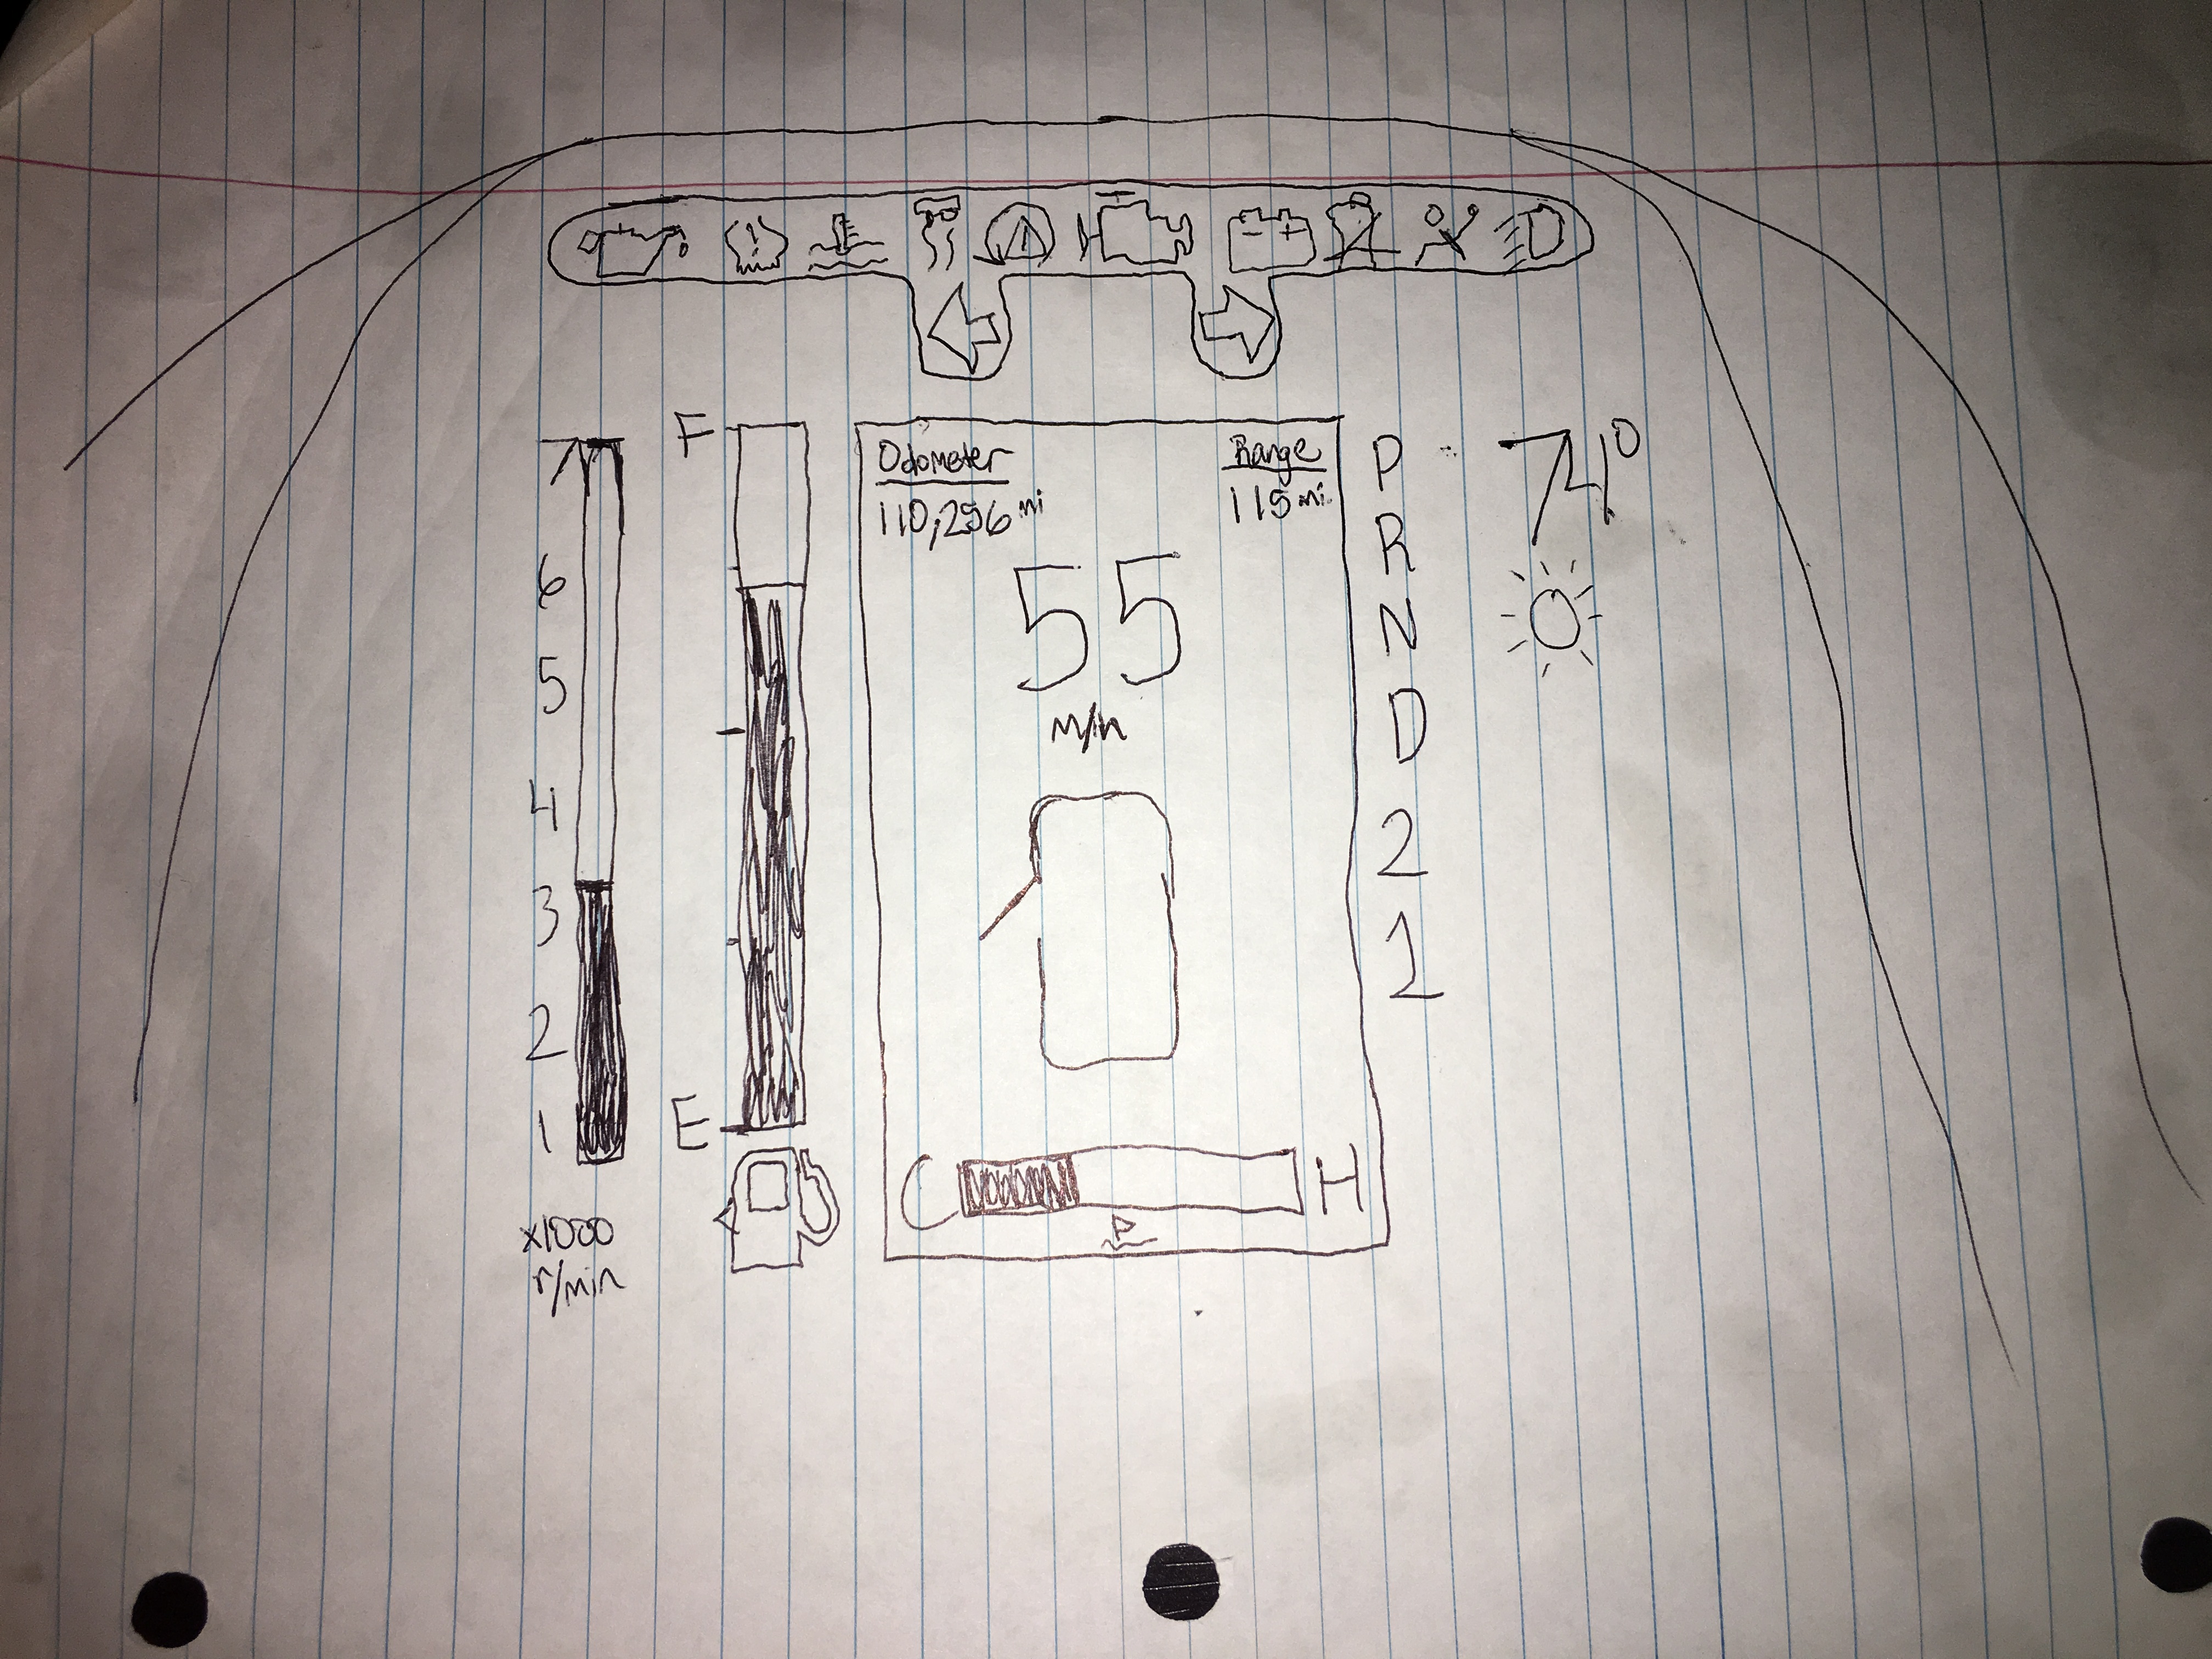 7
6
5
4
3
2
1
x1000
r/min
F
E
Odometer
110,256 mi
Range
115 mi
55
m/h
C H
P
R
N
D
2
1
74°